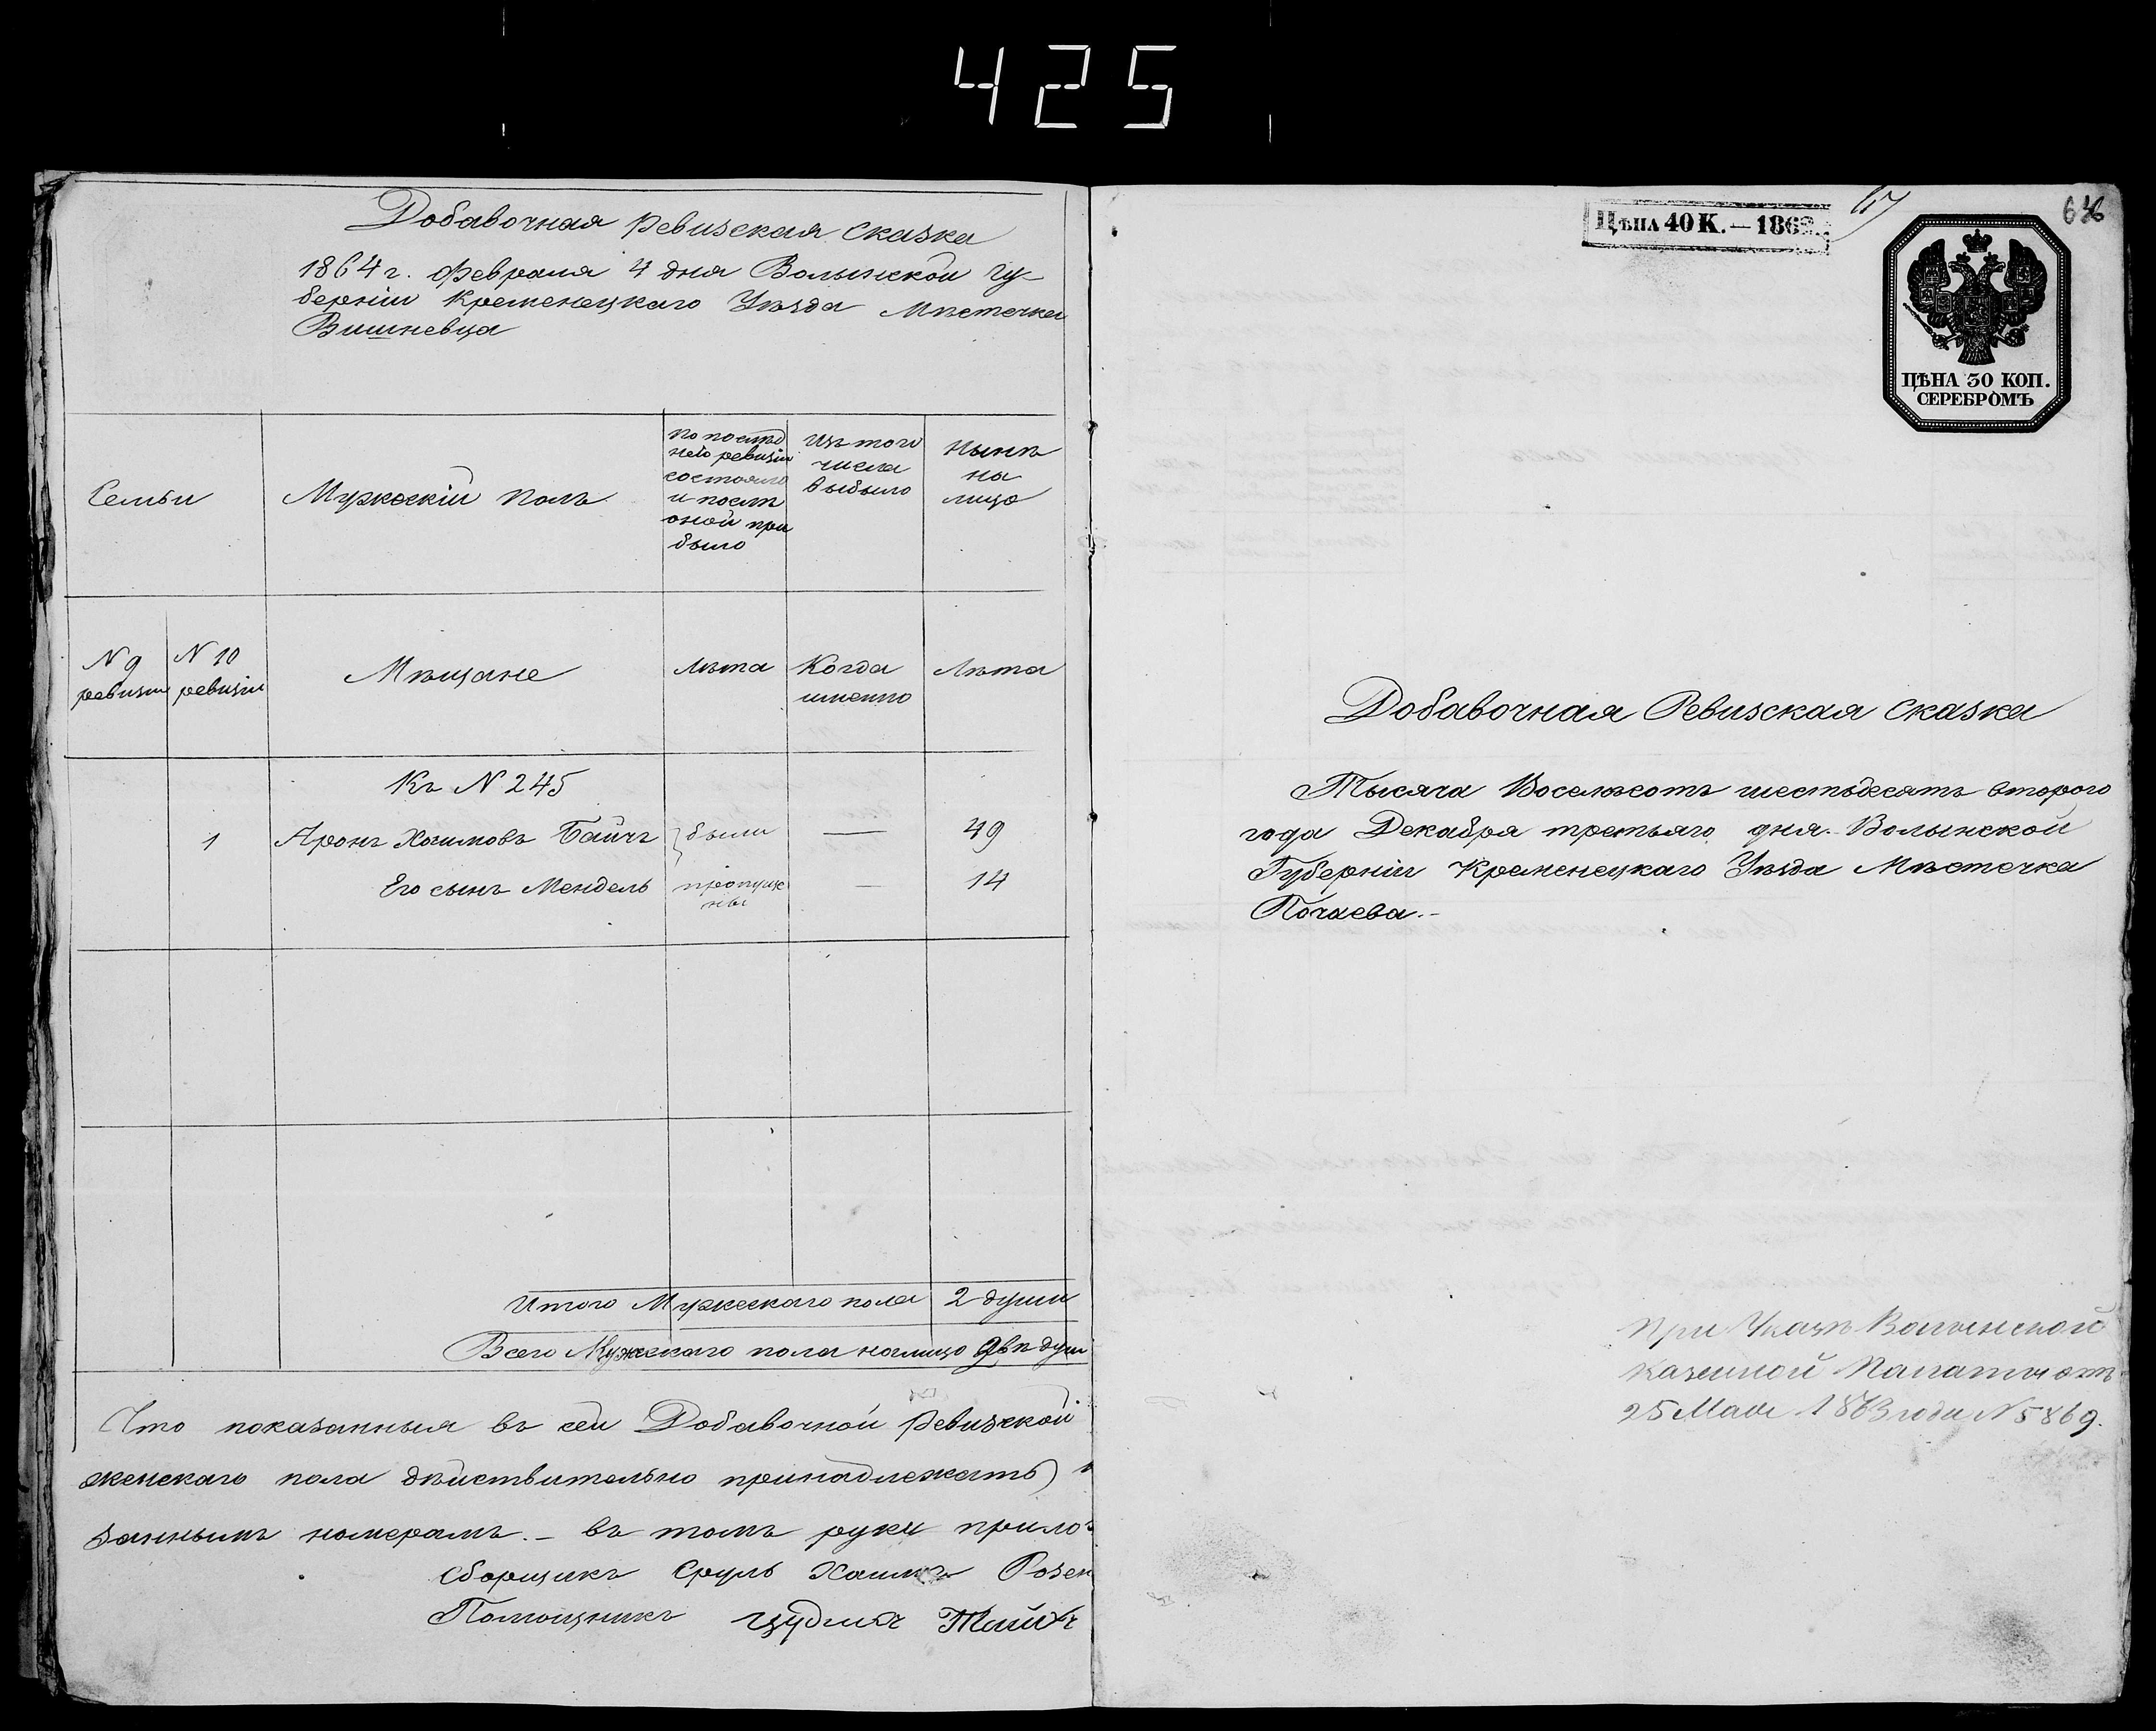 425
Добавочная Ревизская Сказка
1864 г. Февраля 4 дня Волынской Гу-
берніи Кременецкаго Уѣзда Мѣстечка
Вишневца
Семьи
Мужескій полъ
По послѣд
ней ревизіи
состояло
и послѣ
оной при
было
Изъ того
числа
выбыло
Нынѣ
на
лицо
N 9
ревизіи
N 10
ревизіи
Мѣщане
Лѣта
Когда
именно
Лѣта
Къ N 245
1 Аронъ Хаимовъ Байчъ были — 49
Его сынъ Мендель пропуще — 14
ны
Итого Мужескаго пола 2 души
Всего Мужескаго пола налицо двѣ души
Что показанныя въ сей Добавочной Ревизской
женскаго пола дѣйствительно принадлежатъ
заннымъ номерамъ. – въ томъ руки прило
Сборщикъ Сруль Хаимъ Розен
Помощникъ
ЦѢНА 40 К. — 186
636
ЦѢНА 30 КОП.
СЕРЕБРОМЪ
Добавочная Ревизская Сказка
Тысяча Восемьсотъ шестьдесятъ второго
года Декабря третьяго дня. Волынской
Губерніи Кременецкаго Уѣзда Мѣстечка
Почаева. –
При Указѣ Волынской
Казенной Палаты отъ
25 Мая 1863 года N 5869.